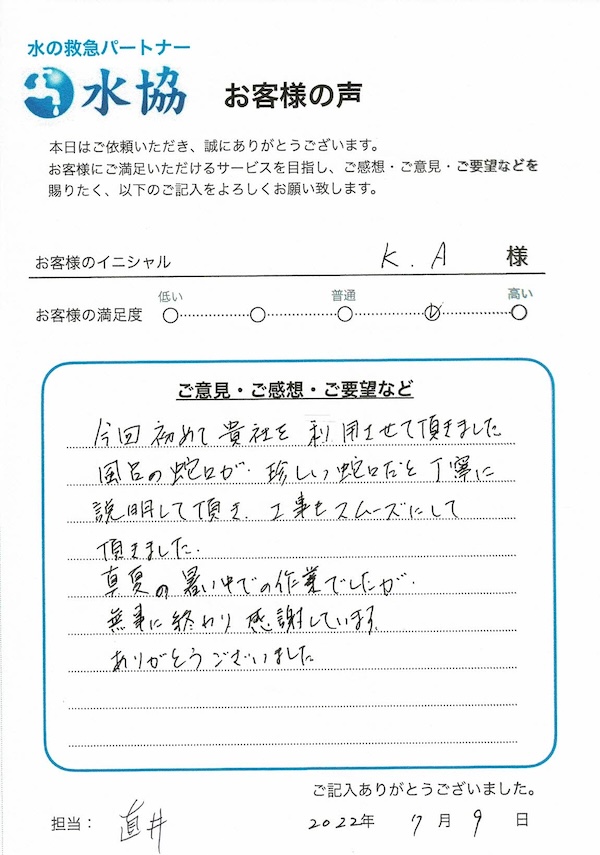 水の救急パートナー
水協 お客様の声
本日はご依頼いただき、誠にありがとうございます。
お客様にご満足いただけるサービスを目指し、ご感想・ご意見・ご要望などを
賜りたく、以下のご記入をよろしくお願い致します。
お客様のイニシャル K.A 様
低い 普通 高い
お客様の満足度
ご意見・ご感想・ご要望など
今回初めて貴社を利用させて頂きました
風呂の蛇口が、珍しい蛇口だと丁寧に
説明して頂き、工事もスムーズにして
頂きました。
真夏の暑い中での作業でしたが、
無事に終わり感謝しています。
ありがとうございました
ご記入ありがとうございました。
担当： 直井 2022年 7月 9日